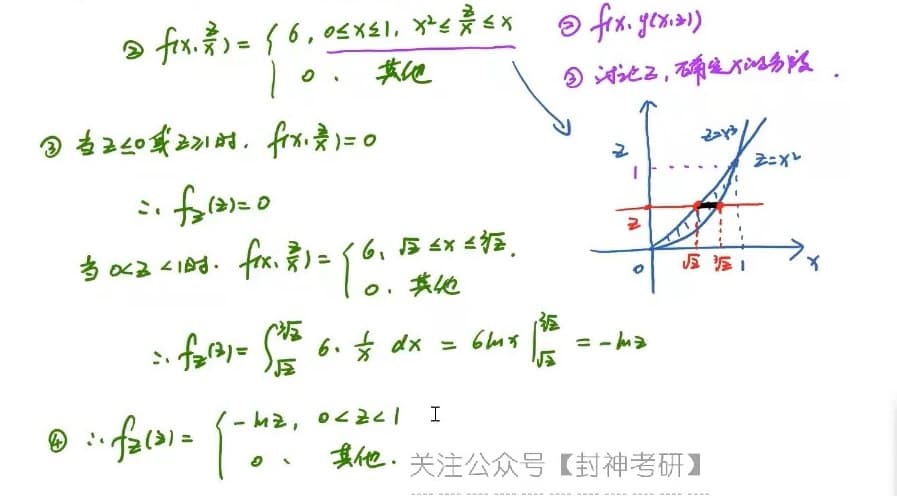 ② f(x,z/x)= { 6, 0≤x≤1, x²≤z/x≤x
0, 其他
② f(x,y(x,z))
③ 讨论z,确定x的分段.
③ 当z≤0或z≥1时, f(x,z/x)=0
∴ f_Z(z)=0
当0<z<1时, f(x,z/x)= { 6, √z≤x≤∛z.
0, 其他
∴ f_Z(z)= ∫_{√z}^{∛z} 6·1/x dx = 6lnx |_{√z}^{∛z} = -lnz
④ ∴ f_Z(z)= { -lnz, 0<z<1
0, 其他.
z
1
z
0
√z
∛z
1
x
z=x³
z=x²
关注公众号【封神考研】